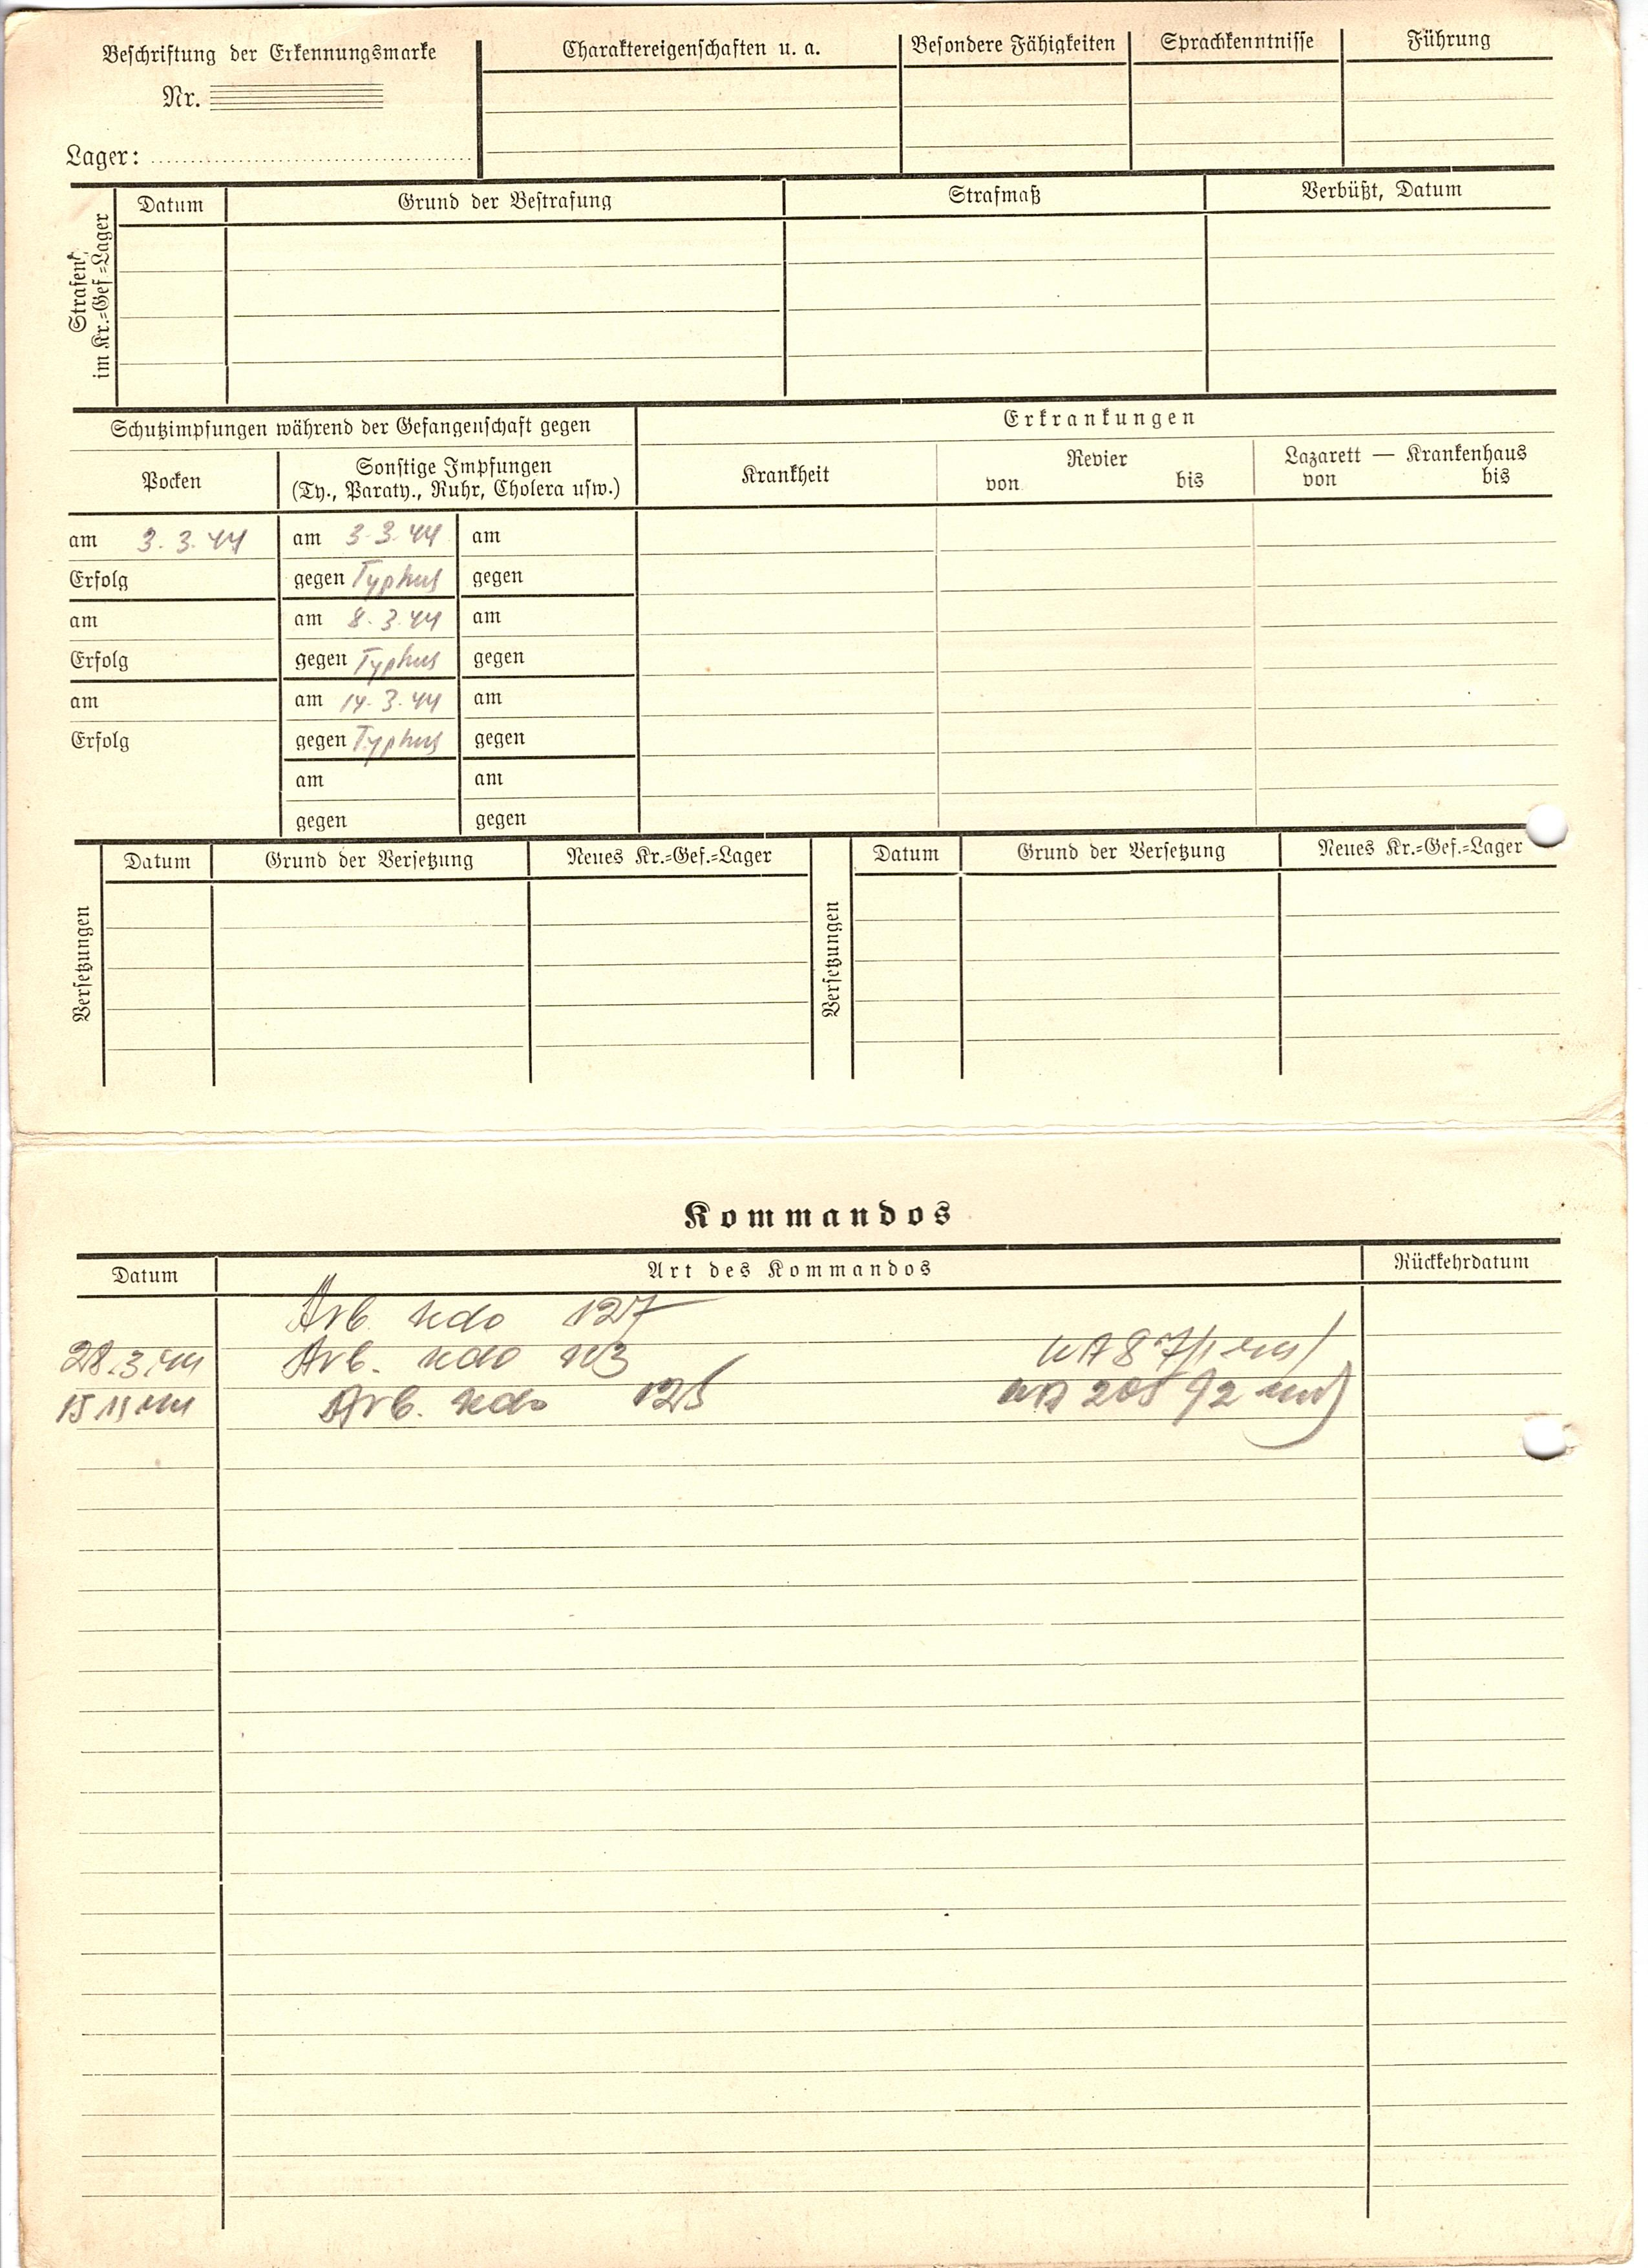 Beschriftung der Erkennungsmarke
Nr.
Lager:
Charaktereigenschaften u. a.
Besondere Fähigkeiten
Sprachkenntnisse
Führung
Strafen
im Kr.=Gef.=Lager
Datum
Grund der Bestrafung
Strafmaß
Verbüßt, Datum
Schutzimpfungen während der Gefangenschaft gegen
Pocken
Sonstige Impfungen
(Ty., Paraty., Ruhr, Cholera usw.)
am 3. 3. 44
am 3. 3. 44
am
Erfolg
gegen Typhus
gegen
am
am 8. 3. 44
am
Erfolg
gegen Typhus
gegen
am
am 14. 3. 44
am
Erfolg
gegen Typhus
gegen
am
am
gegen
gegen
Erkrankungen
Krankheit
Revier
von bis
Lazarett — Krankenhaus
von bis
Versetzungen
Datum
Grund der Versetzung
Neues Kr.=Gef.=Lager
Versetzungen
Datum
Grund der Versetzung
Neues Kr.=Gef.=Lager
Kommandos
Datum
Art des Kommandos
Rückkehrdatum
Arb. Kdo 127
28. 3. 44 Arb. Kdo
Arb. Kdo 125